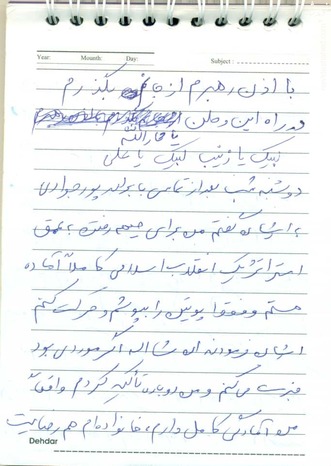 Year: Mounth: Day: Subject :
با اذن رهبرم از جانم بگذرم
در راه این وطن
یا ثارالله
لبیک یا زینب لبیک یا علی
دوشنبه شب بعد از تماس با برادر پورجوادی
به ایشان گفتم من برای جبهه رفتن به عمق
استراتژیک انقلاب اسلامی کاملاً آماده
هستم و فقط پوتین را بپوشم و حرکت کنم
ایشان فرمودند ان شاالله اگر موردی بود
خبرت می‌کنم و من دوباره تأکید کردم واقعاً
من آمادگی کامل دارم، خانواده‌ام هم رضایت
Dehdar